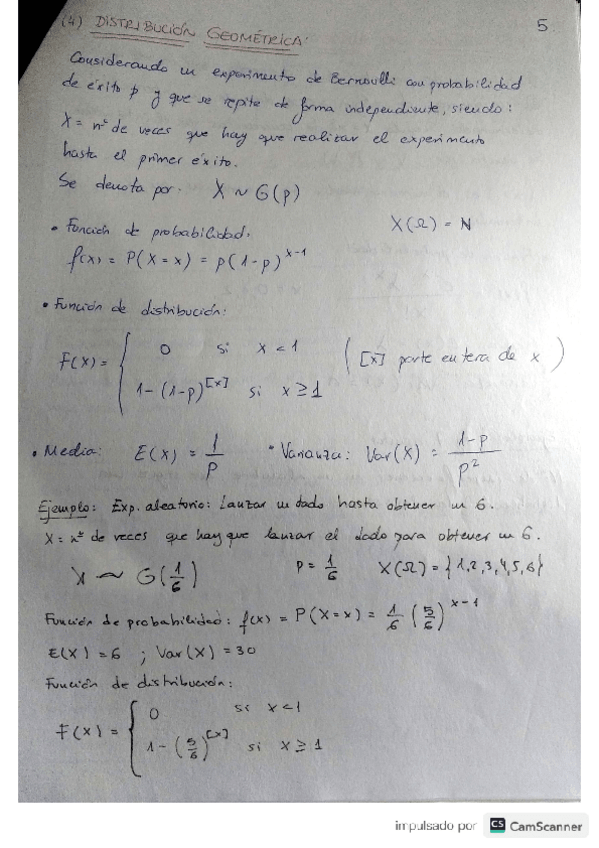 (4) DISTRIBUCIÓN GEOMÉTRICA: 5
Considerando un experimento de Bernoulli con probabilidad
de éxito p y que se repite de forma independiente, siendo:
X = nº de veces que hay que realizar el experimento
hasta el primer éxito.
Se denota por: X ~ G(p)
• Función de probabilidad. X(Ω) = N
f(x) = P(X = x) = p(1-p)^{x-1}
• Función de distribución:
F(x) = { 0 si x < 1 ([x] parte entera de x)
1-(1-p)^{[x]} si x ≥ 1
• Media: E(X) = 1/p • Varianza: Var(X) = (1-p)/p²
Ejemplo: Exp. aleatorio: Lanzar un dado hasta obtener un 6.
X = nº de veces que hay que lanzar el dado para obtener un 6.
X ~ G(1/6) p = 1/6 X(Ω) = {1,2,3,4,5,6}
Función de probabilidad: f(x) = P(X=x) = 1/6 (5/6)^{x-1}
E(X) = 6 ; Var(X) = 30
Función de distribución:
F(x) = { 0 si x < 1
1-(5/6)^{[x]} si x ≥ 1
impulsado por CS CamScanner